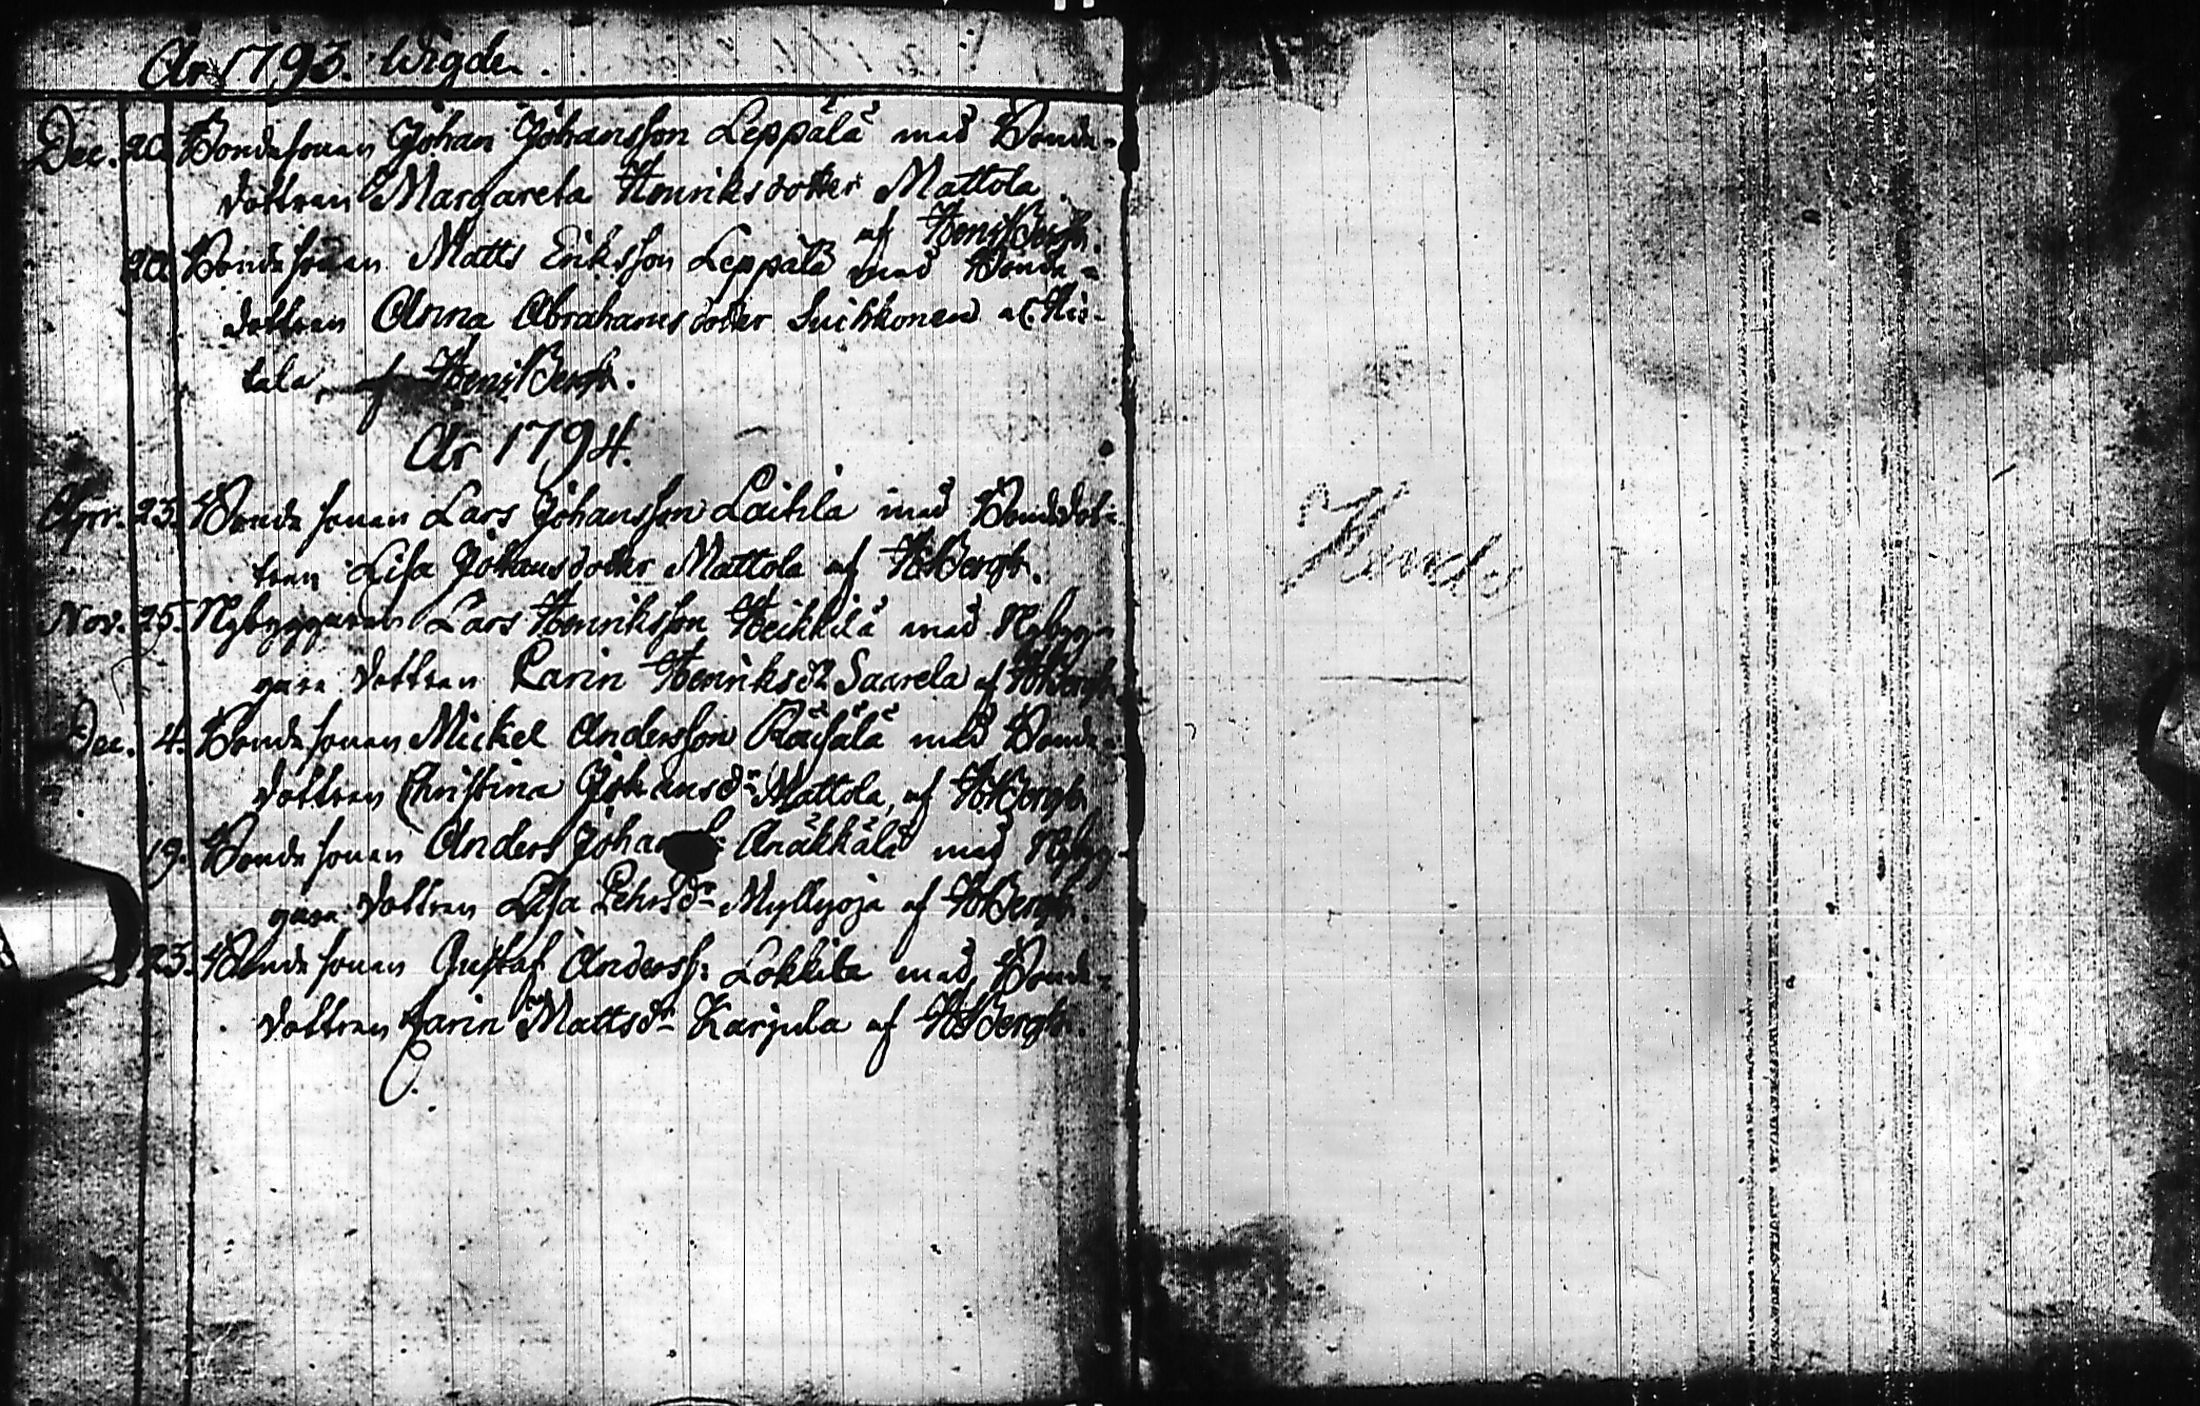 År 1793. Wigde.
Dec. 20. Bondesonen Johan Johansson Leppälä med Bonde-
dottren Margareta Henriksdotter Mattola
af Henr. Bergh.
20. Bondesonen Matts Eriksson Leppälä med Bonde-
dottren Anna Abrahamsdotter Suikkonen af Hie-
tala, af Henr. Bergh.
År 1794.
Apr. 23. Bondesonen Lars Johansson Laitila med Bondedot-
tren Lisa Johansdotter Mattola af HBergh.
Nov. 25. Nybyggaren Lars Henriksson Heikkilä med Nybyg-
gare dottren Carin Henriksdr Saarela af HBergh.
Dec. 4. Bondesonen Mickel Andersson Räisälä med Bonde-
dottren Christina Johansdr Mattola, af HBergh.
19. Bondesonen Anders Anäkkälä med Nybyg-
gare dottren Lisa Pehrsdr Myllyoja af HBergh.
23. Bondesonen Gustaf Anderss: Lokkila med Bonde-
dottren Carin Mattsdr Karjula af HBergh.